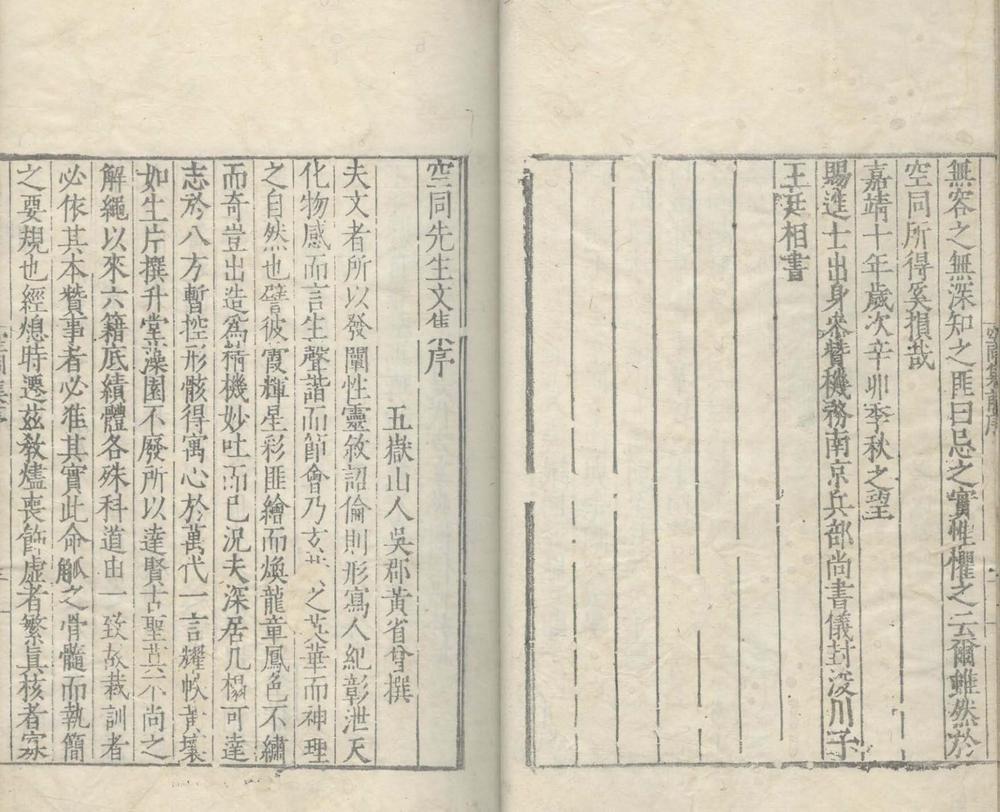 無容之無深知之匪曰忌之實惟懼之云爾雖然於
空同所得奚損哉
嘉靖十年歲次辛卯季秋之望
賜進士出身參贊機務南京兵部尚書儀封浚川子
王廷相書
空同先生文集序
五嶽山人吳郡黃省曾撰
夫文者所以發闡性靈敘詔倫則形寫人紀彰泄天
化物感而言生聲諧而節會乃玄之英華而神理
之自然也譬彼霞輝星彩匪繪而煥龍章鳳色不繡
而奇豈出造爲術機妙吐而已況夫深居几榻可達
志於八方暫控形骸得寓心於萬代一言耀帙黃壤
如生片撰升堂藻園不廢所以達賢古聖莫不尚之
解繩以來六籍厎績體各殊科道由一致故裁訓者
必依其本贊事者必准其實此命觚之骨髓而執簡
之要規也經熄時遷茲教燼喪飾虛者繁真核者寡